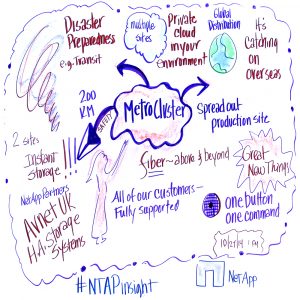 Disaster
Preparedness
e.g. Transit
multiple
sites
Private
cloud
in your
environment
Global
Distribution
It's
Catching
on
overseas
200
KM
MetroCluster
Spread out
production site
SAFETY
2 sites
Instant
storage!!!
NetApp Partners
Avnet UK
H.A. Storage
Systems
fiber ~ above & beyond
All of our customers—
Fully supported
Great
New Things
one button
one command
10/27/14 1 PM
#NTAPinsight
NetApp